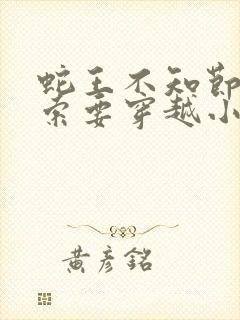 蛇王不知節
索要穿越小
黄彦銘